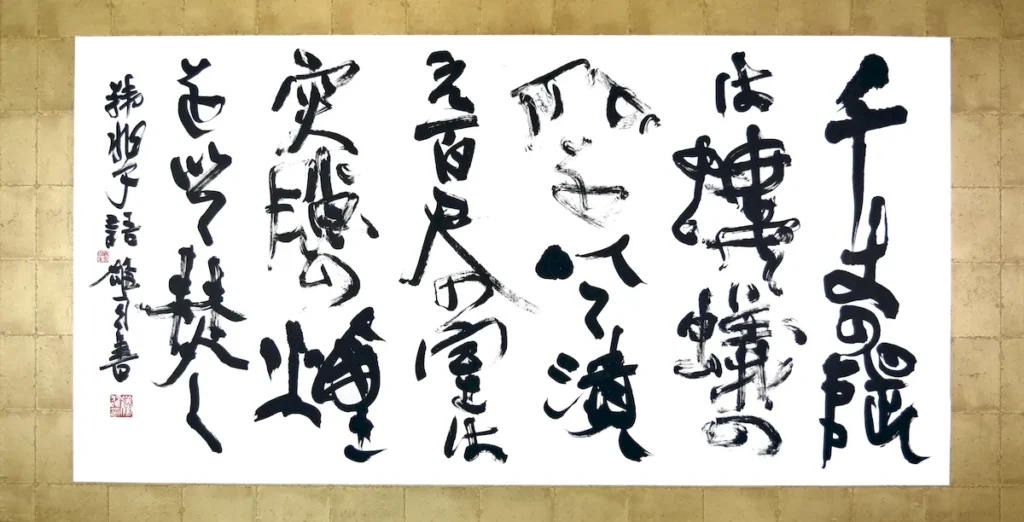 千丈の隄
は螻蟻の
穴を以て潰
え百尺の室は
突隙の煙
を以て焚く
韓非子語 雄 書